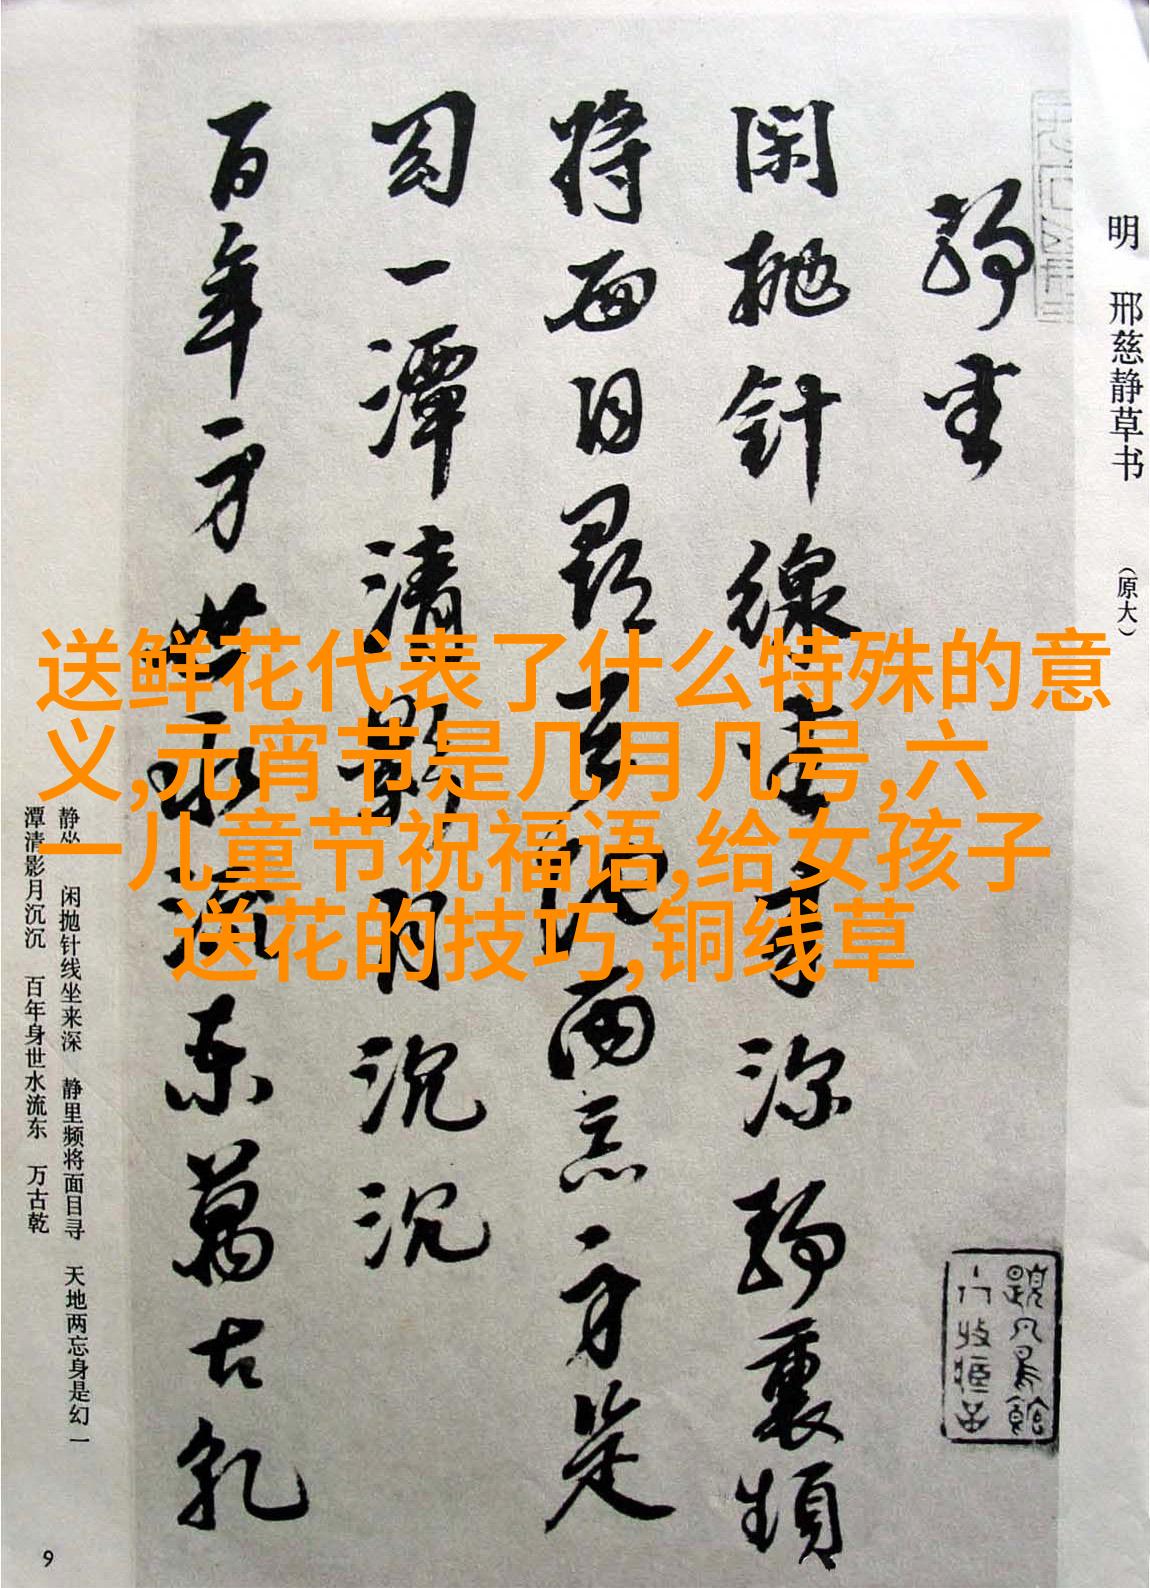 明 邢慈静草书 （原大）
静坐
闲抛针線坐来深静裏頻
将面目尋天地两忘身是
幻一潭清影月沉沉
百年身世水流东萬古乾
静坐 闲抛针线坐来深 静里频将面目寻 天地两忘身是幻 一
潭清影月沉沉 百年身世水流东 万古乾
9
送鲜花代表了什么特殊的意
义,元宵节是几月几号,六
一儿童节祝福语,给女孩子
送花的技巧,铜线草